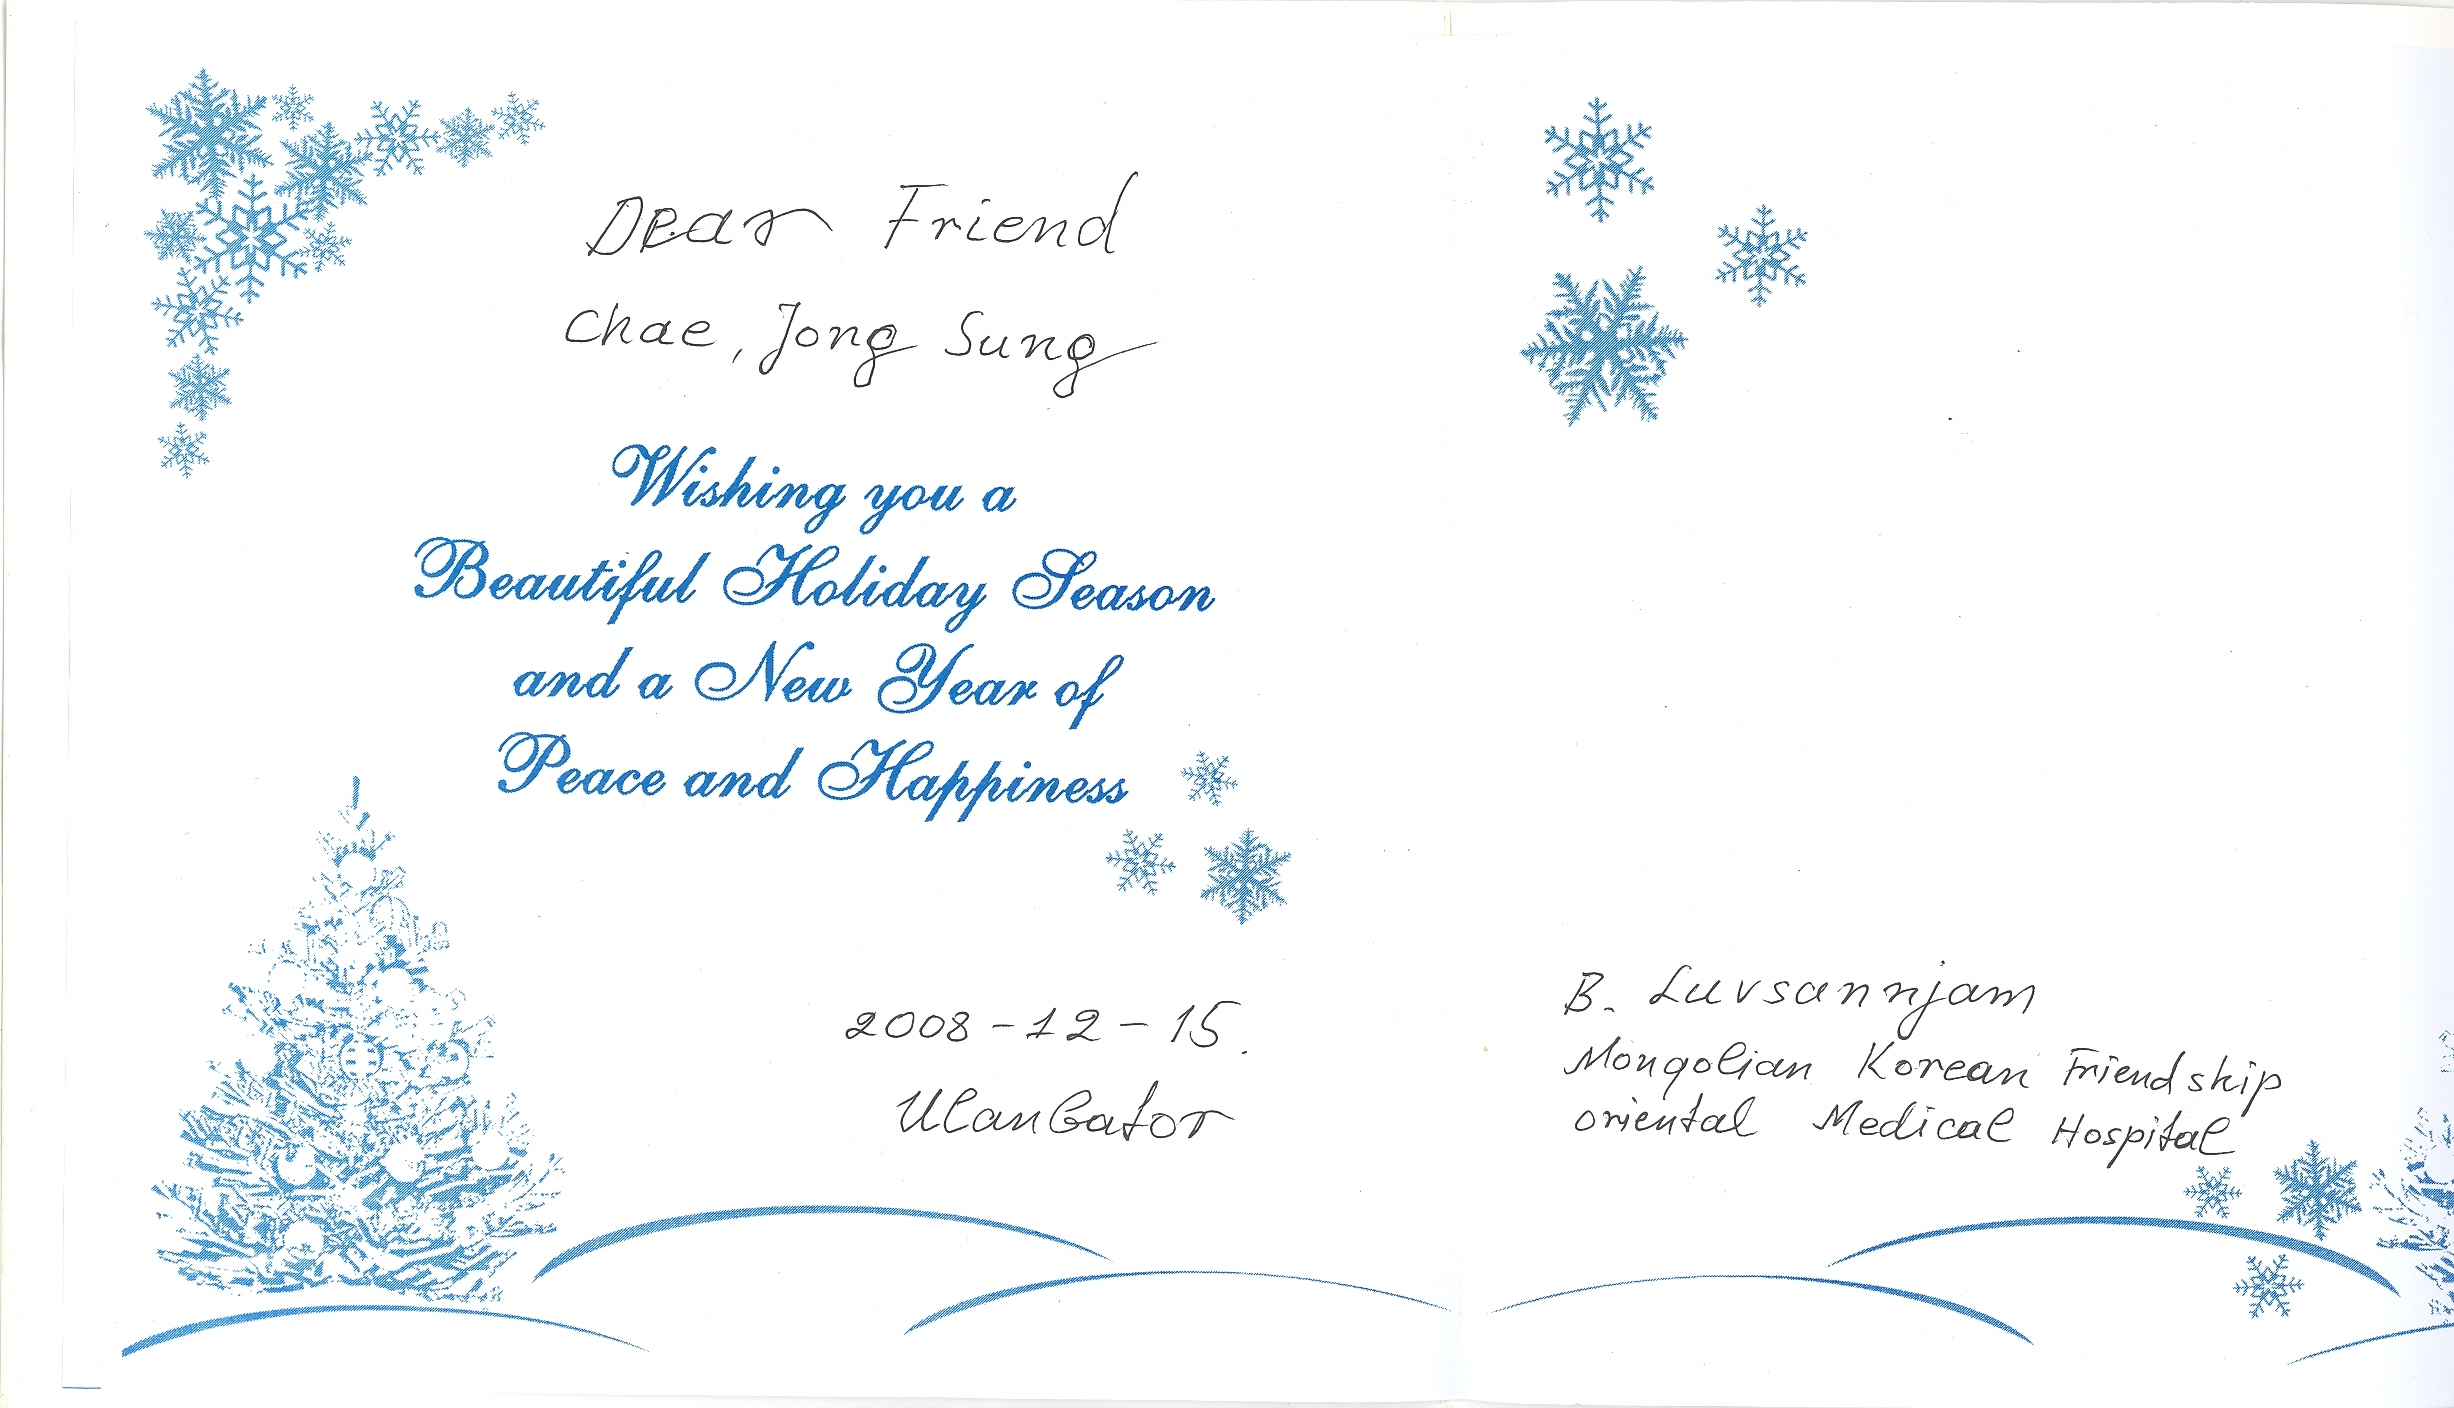 Dear Friend
Chae, Jong Sung
Wishing you a
Beautiful Holiday Season
and a New Year of
Peace and Happiness
2008-12-15.
Ulanbator
B. Luvsannjam
Mongolian Korean Friendship
oriental Medical Hospital